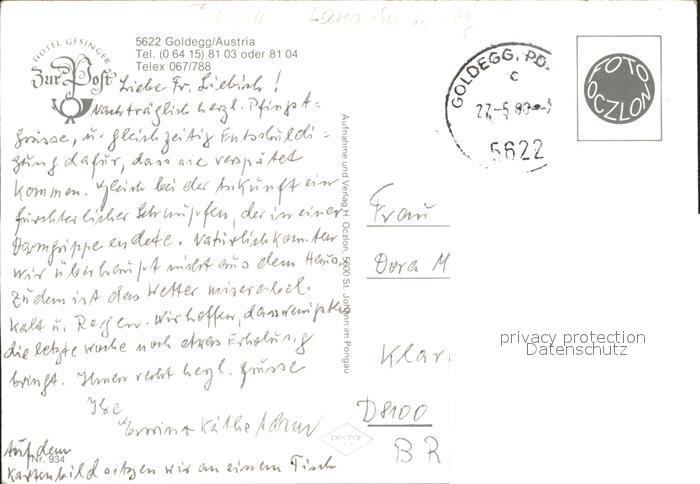 HOTEL GESINGER
Zur Post
5622 Goldegg/Austria
Tel. (0 64 15) 81 03 oder 81 04
Telex 067/788
Liebe Fr. Liebisch!
Nachträglich herzl. Pfingst-
grüsse, u. gleichzeitig Entschuldi-
gung dafür, dass sie verspätet
kommen. Gleich bei der Ankunft ein
fürchterlicher Schnupfen, der in einer
Darmgrippe endete. Natürlich konnten
wir überhaupt nicht aus dem Haus.
Zudem ist das Wetter miserabel.
Kalt u. Regen. Wir hoffen, dass wenigstens
die letzte Woche noch etwas Erholung
bringt. Ihnen recht herzl. Grüsse
Ihre
Erwin + Käthe
Auf dem
Nr. 934
Kartenbild sitzen wir an einem Tisch
Aufnahme und Verlag H. Oczlon, 5600 St. Johann im Pongau
pechar
GOLDEGG, PO.
c
27.-5.80
5622
FOTO
OCZLON
Frau
Dora M
Klar
D 8100
BR
privacy protection
Datenschutz